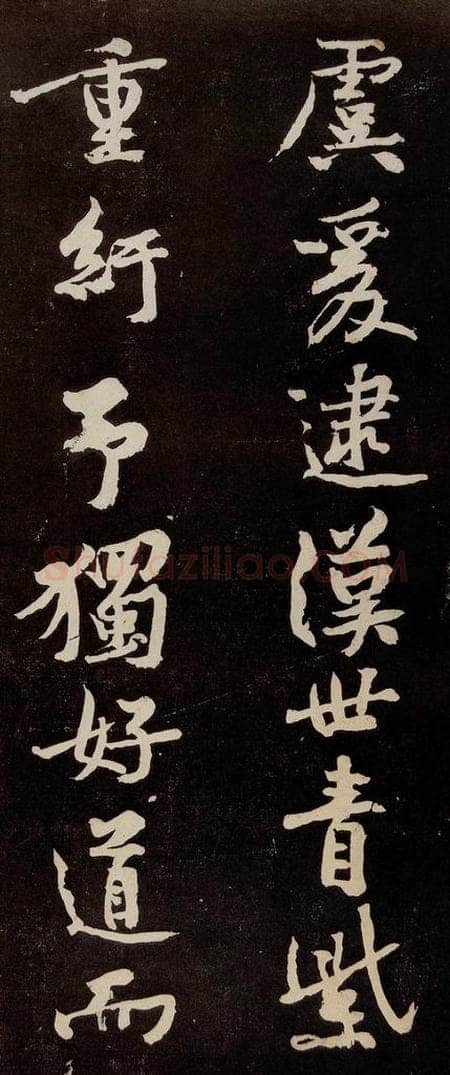 虞爰逮漢世青紫
重紆予獨好道而
Shufaziliao.COM